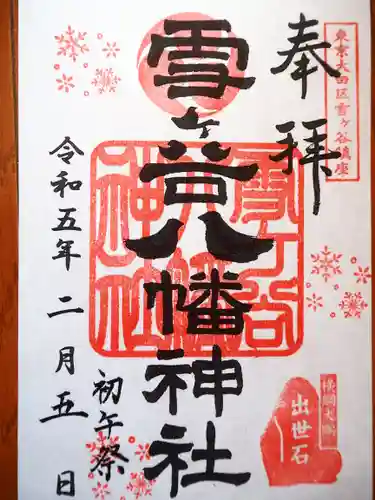 東京大田区雪ヶ谷鎮座
奉拝
雪ヶ谷八幡神社
雪ヶ谷
八幡
神社
横綱大鵬
出世石
初午祭
令和五年二月五日